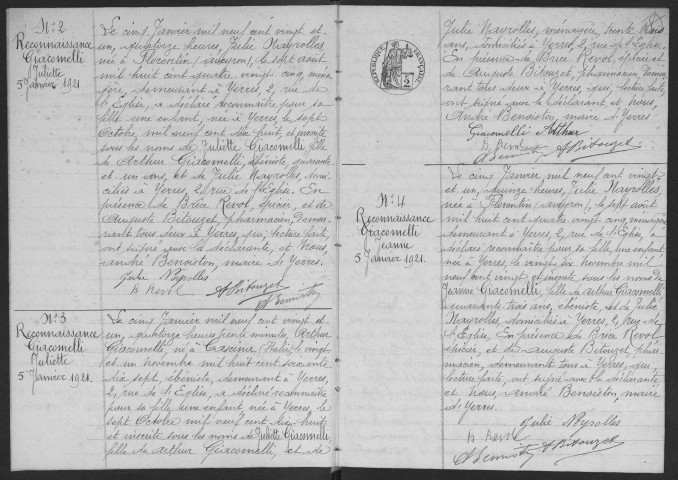 N° 2
Reconnaissance
Giacomelli
Juliette
5 Janvier 1921.
Le cinq Janvier mil neuf cent vingt et
un, quatorze heures, Julie Nayrolles
née à Florentin (Aveyron), le sept août
mil huit cent quatre vingt cinq, ména
gère, demeurant à Yerres, 2, rue de
l'Eglise, a déclaré reconnaître pour sa
fille une enfant, née à Yerres, le sept
Octobre mil neuf cent dix huit, et inscrite
sous les noms de Juliette Giacomelli, fille
de Arthur Giacomelli, ébéniste, quarante
et un ans, et de Julie Nayrolles, domi
ciliés à Yerres, 2, rue de l'Eglise. En
présence de Brice Revol, épicier, et de
Auguste Bitouzet, pharmacien, demeu
rant tous deux à Yerres, qui, lecture faite,
ont signé avec la déclarante, et Nous,
André Benoiston, maire de Yerres.
Julie Nayrolles
B. Revol A Bitouzet
A Benoiston
N° 3
Reconnaissance
Giacomelli
Juliette
5 Janvier 1921.
Le cinq Janvier mil neuf cent vingt et
un, quatorze heures trente minutes, Arthur
Giacomelli, né à Cascina (Italie), le vingt
et un novembre mil huit cent soixante
dix sept, ébéniste, demeurant à Yerres,
2, rue de l'Eglise, a déclaré reconnaître
pour sa fille une enfant, née à Yerres, le
sept Octobre mil neuf cent dix huit
et inscrite sous les noms de Juliette Giacomelli,
fille de Arthur Giacomelli, et de
Julie Nayrolles, ménagère, trente
ans, domiciliés à Yerres, 2, rue de l'Eglise.
En présence de Brice Revol, épicier et
de Auguste Bitouzet, pharmacien, demeu
rant tous deux à Yerres, qui, lecture faite,
ont signé avec le déclarant et Nous,
André Benoiston, maire de Yerres.
Giacomelli Arthur
B. Revol
A Benoiston A Bitouzet
REPUBLIQUE FRANÇAISE
N° 4
Reconnaissance
Giacomelli
Jeanne
5 Janvier 1921.
Le cinq Janvier mil neuf cent vingt
et un, quinze heures, Julie Nayrolles,
née à Florentin (Aveyron), le sept août
mil huit cent quatre vingt cinq, ménagère
demeurant à Yerres, 2, rue de l'Eglise, a
déclaré reconnaître pour sa fille, une enfant
née à Yerres, le vingt six novembre mil
neuf cent vingt et inscrite sous les noms de
Jeanne Giacomelli, fille de Arthur Giacomelli,
quarante trois ans, ébéniste, et de Julie
Nayrolles, domiciliés à Yerres, 2, rue de
l'Eglise. En présence de Brice Revol
épicier, et de Auguste Bitouzet, phar
macien, demeurant tous à Yerres, qui,
lecture faite, ont signé avec la déclarante,
et Nous, André Benoiston, maire
de Yerres.
Julie Nayrolles
B. Revol
A Benoiston A Bitouzet